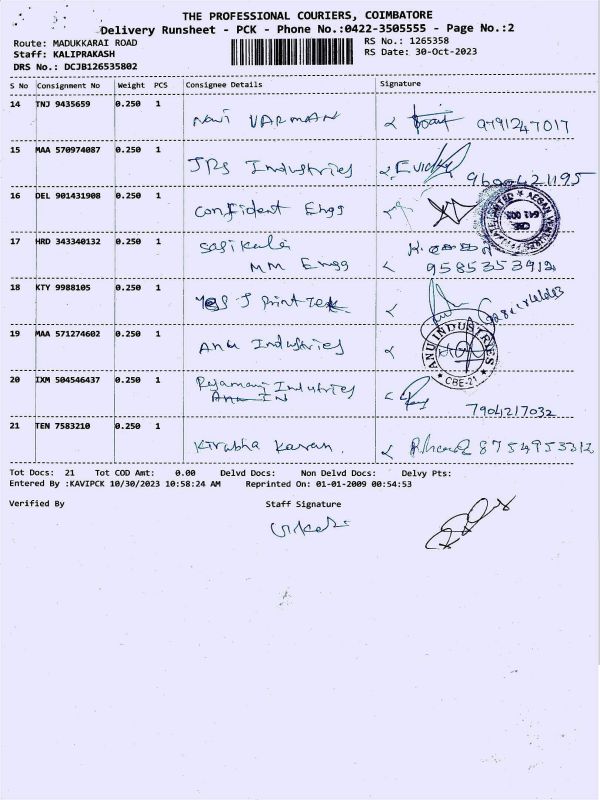 THE PROFESSIONAL COURIERS, COIMBATORE
Delivery Runsheet - PCK - Phone No.:0422-3505555 - Page No.:2
Route: MADUKKARAI ROAD RS No.: 1265358
Staff: KALIPRAKASH RS Date: 30-Oct-2023
DRS No.: DCJB126535802
S No Consignment No Weight PCS Consignee Details Signature
14 TNJ 9435659 0.250 1
VARMAN 9791247017
15 MAA 570974087 0.250 1
JRS Industries 9600421195
16 DEL 901431908 0.250 1
Confident Engg
CBE 641 003
17 HRD 343340132 0.250 1
Sasikala
MM Engg 9585353912
18 KTY 9988105 0.250 1
19 MAA 571274602 0.250 1
Anu Industries
ANU INDUSTRIES
* CBE-21 *
20 IXM 504546437 0.250 1
Industries
7904217032
21 TEN 7583210 0.250 1
Kirubha Karan. 8754953312
Tot Docs: 21 Tot COD Amt: 0.00 Delvd Docs: Non Delvd Docs: Delvy Pts:
Entered By :KAVIPCK 10/30/2023 10:58:24 AM Reprinted On: 01-01-2009 00:54:53
Verified By Staff Signature